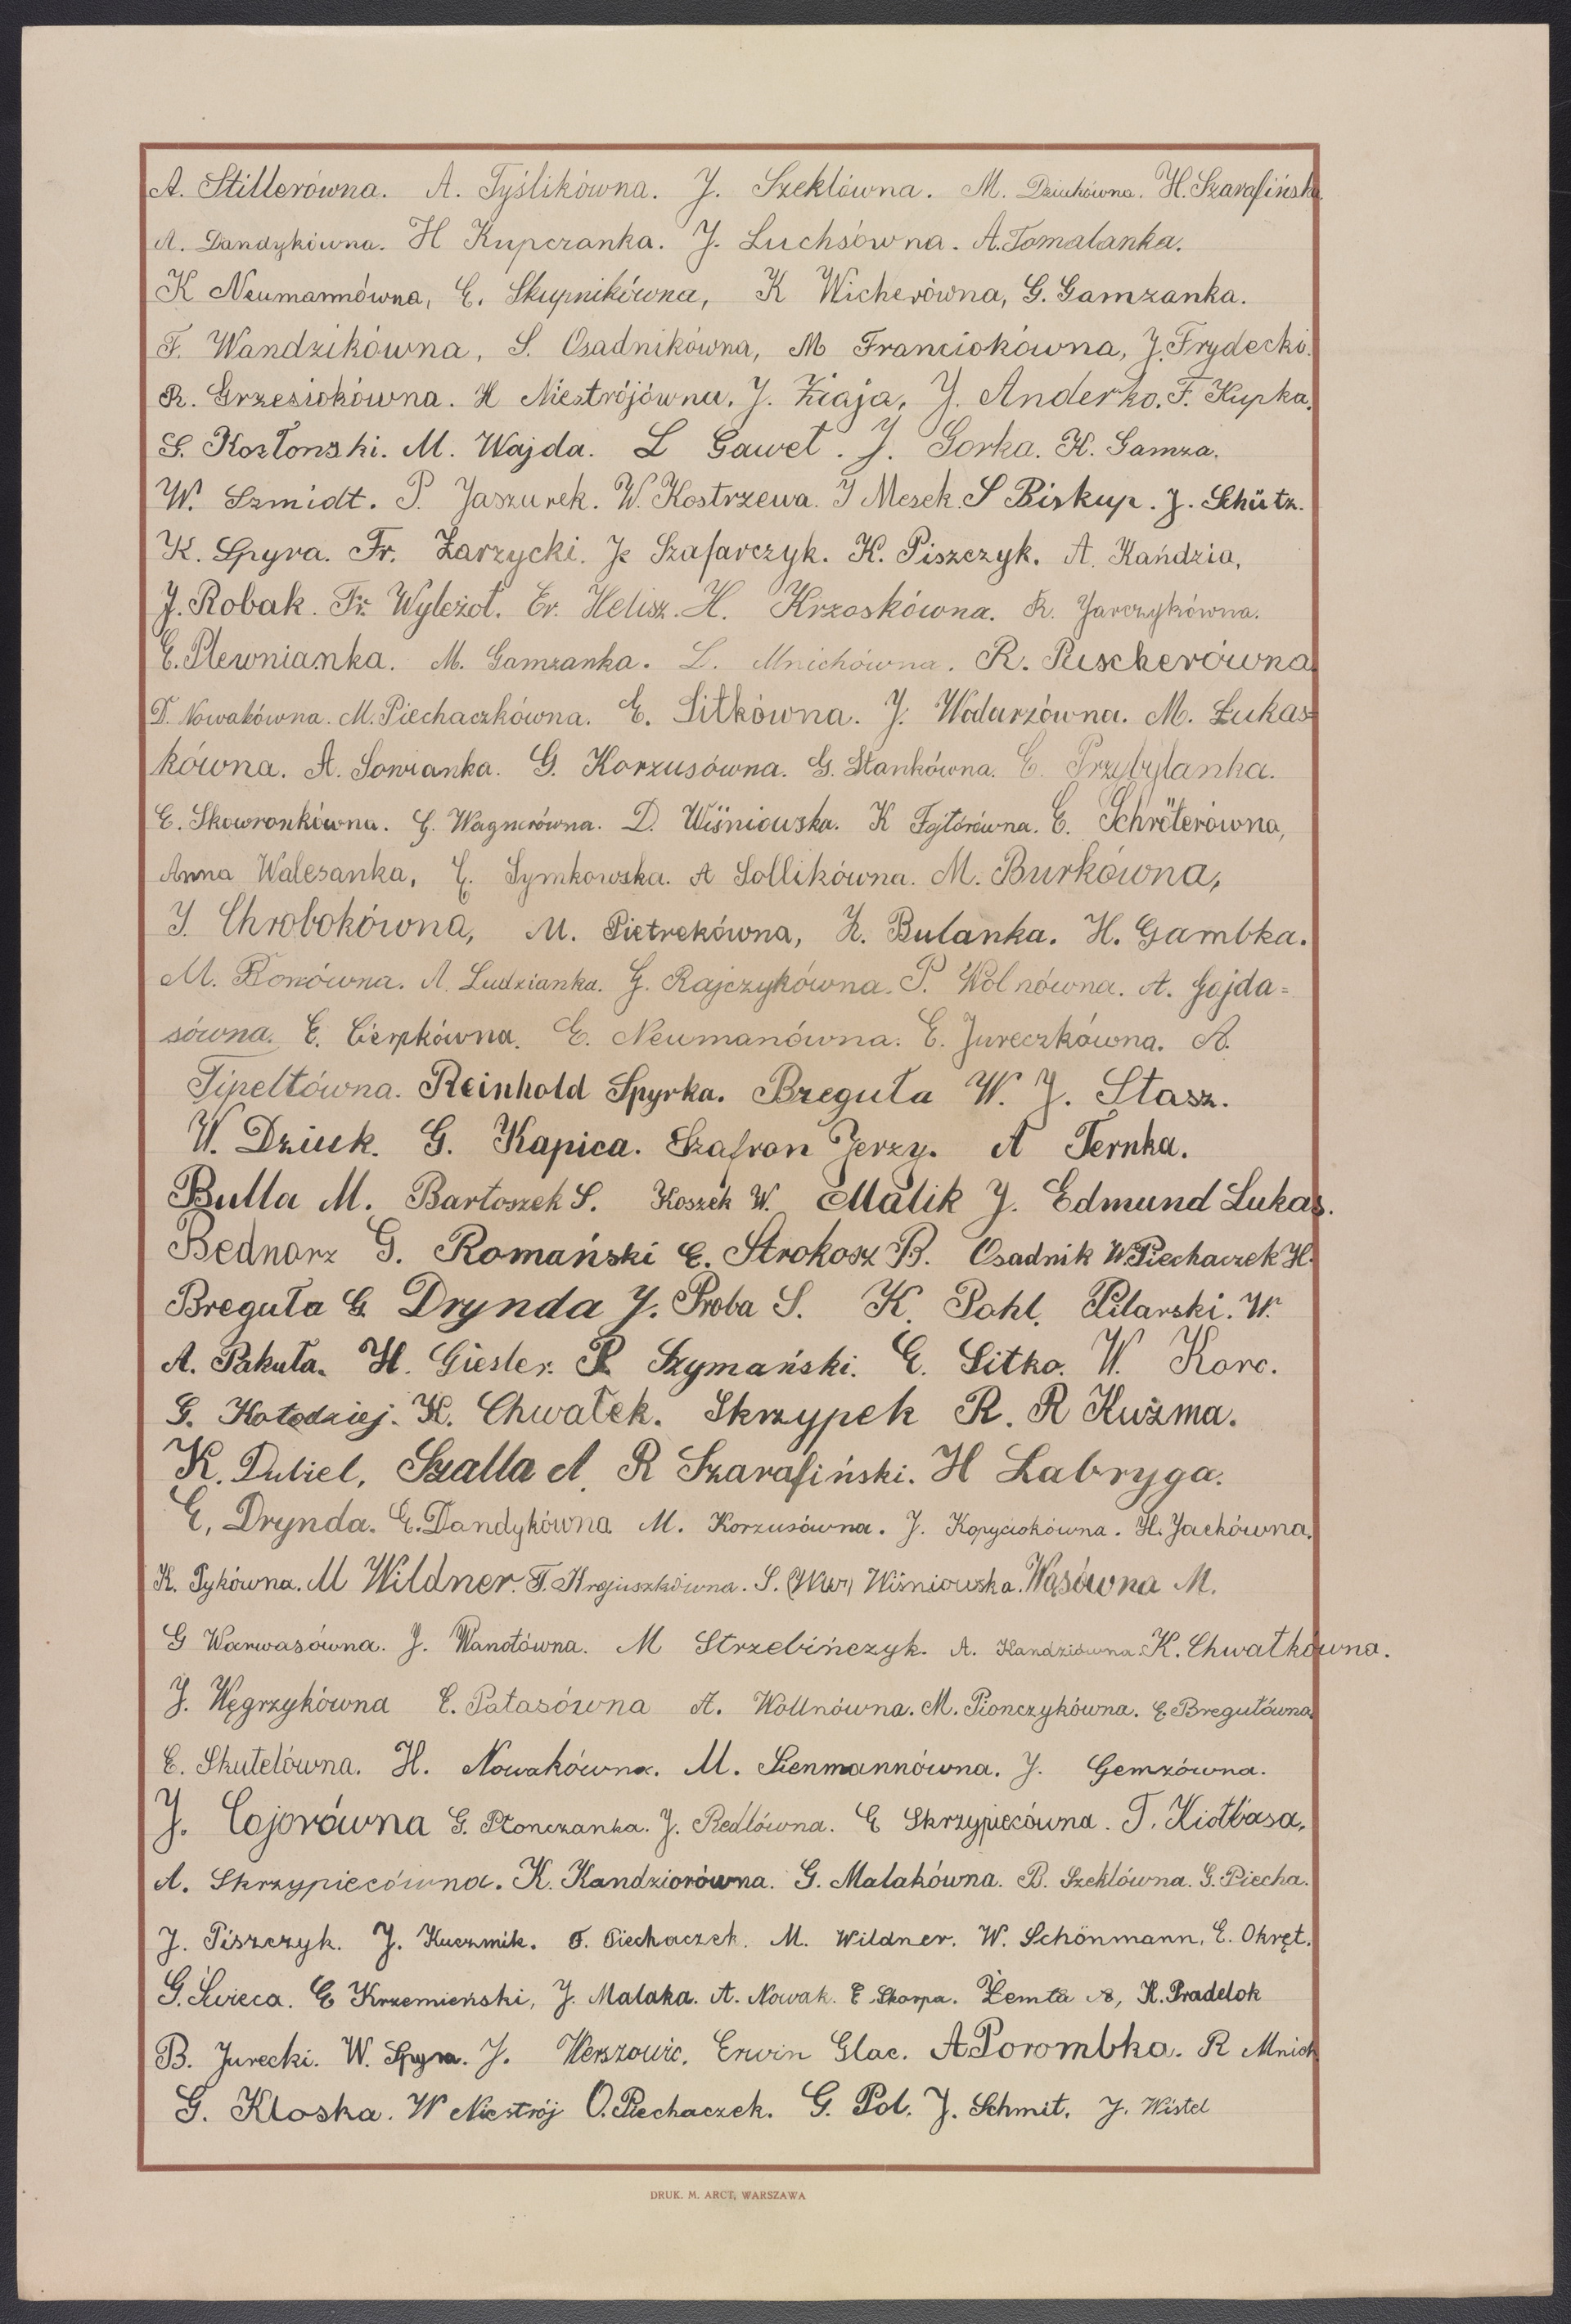 A. Stillerówna. A. Tyślikówna. J. Szeklówna. M. Dziukówna. H. Szarafińska
A. Dandykówna. H Kupczanka. J. Luchsówna. A. Tomalanka.
K Neumannówna, E. Skupnikówna, K Wicherówna, G. Gamzanka.
F. Wandzikówna, S. Osadnikówna, M Franciokówna, J. Frydecki.
R. Grzesiokówna. H Niestrójówna. J. Ziaja, J. Anderko. F. Kupka.
S. Kozłonski. M. Wajda. L Gaweł. J. Gorka. K. Gamza.
W. Szmidt. P. Jaszurek. W. Kostrzewa. J Mesek. S Biskup. J. Schütz.
K. Spyra. Fr. Zarzycki. J. Szafarczyk. K. Piszczyk. A. Kańdzia,
J. Robak. Fr. Wyleżoł. Er. Helisz. H. Krzoskówna. R. Jarczykówna.
E. Plewnianka. M. Gamzanka. L. Mnichówna. R. Puscherówna
D. Nowakówna. M. Piechaczkówna. E. Sitkówna. J. Wodarzówna. M. Łukas=
kówna. A. Sowianka. G. Korzusówna. G. Stankówna. E. Przybylanka.
E. Skowronkówna. G. Wagnerówna. D. Wiśniowska. K Fojtórówna. E. Schröterówna,
Anna Walesanka, E. Symkowska. A Sollikówna. M. Burkówna,
J. Chrobokówna, M. Pietrekówna, Z. Bulanka. H. Gambka.
M. Bonówna. A. Ludzianka. G. Rajczykówna. P. Wolnówna. A. Gojda=
sówna. E. Cierpkówna. E. Neumanówna. E. Jureczkówna. A.
Tipeltówna. Reinhold Spyrka. Breguła W. J. Stasz.
W. Dziuk. G. Kapica. Szafron Jerzy. A Ternka.
Bulla M. Bartoszek S. Koszek W. Malik J. Edmund Lukas.
Bednorz G. Romański E. Strokosz B. Osadnik W. Piechaczek H.
Breguła G. Drynda J. Proba S. K. Pohl. Pilarski. W.
A. Pakuła. H. Giesler. R Szymański. E. Sitko. W. Korc.
G. Kołodziej. K. Chwałek. Skrzypek R. R Kuźma.
K. Dubiel, Szalla A. R Szarafiński. H Labryga.
E, Drynda. E. Dandykówna M. Korzusówna. J. Kopyciokówna. H. Jackówna.
K. Pykówna. M Wildner. F. Krojuszkówna. S. Wiśniowska. Wąsówna M.
G Warwasówna. J. Wanotówna. M Strzebińczyk. A. Kandziówna. K. Chwatkówna.
J. Węgrzykówna E. Patasówna A. Wollnówna. M. Pionczykówna. E Bregułówna
E. Skutelówna. H. Nowakówna. M. Sienmannówna. J. Gemzówna.
J. Cojorówna G. Płonczanka. J. Redlówna. E Skrzypiecówna. T. Kiołbasa,
A. Skrzypiecówna. K. Kandziorówna. G. Malakówna. B. Szeklówna. G. Piecha.
J. Piszczyk. J. Kuczmik. F. Piechaczek. M. Wildner. W. Schönmann, E. Okręt.
G. Świeca. E Krzemieński, J. Malaka. A. Nowak. E Skorpa. Żemła A, K. Pradelok
B. Jurecki. W. Spyra. J. Werszowic. Erwin Glac. A Porombka. R Mnich
G. Kloska. W Niestrój O. Piechaczek. G. Pol. J. Schmit. J. Wistel
DRUK. M. ARCT, WARSZAWA